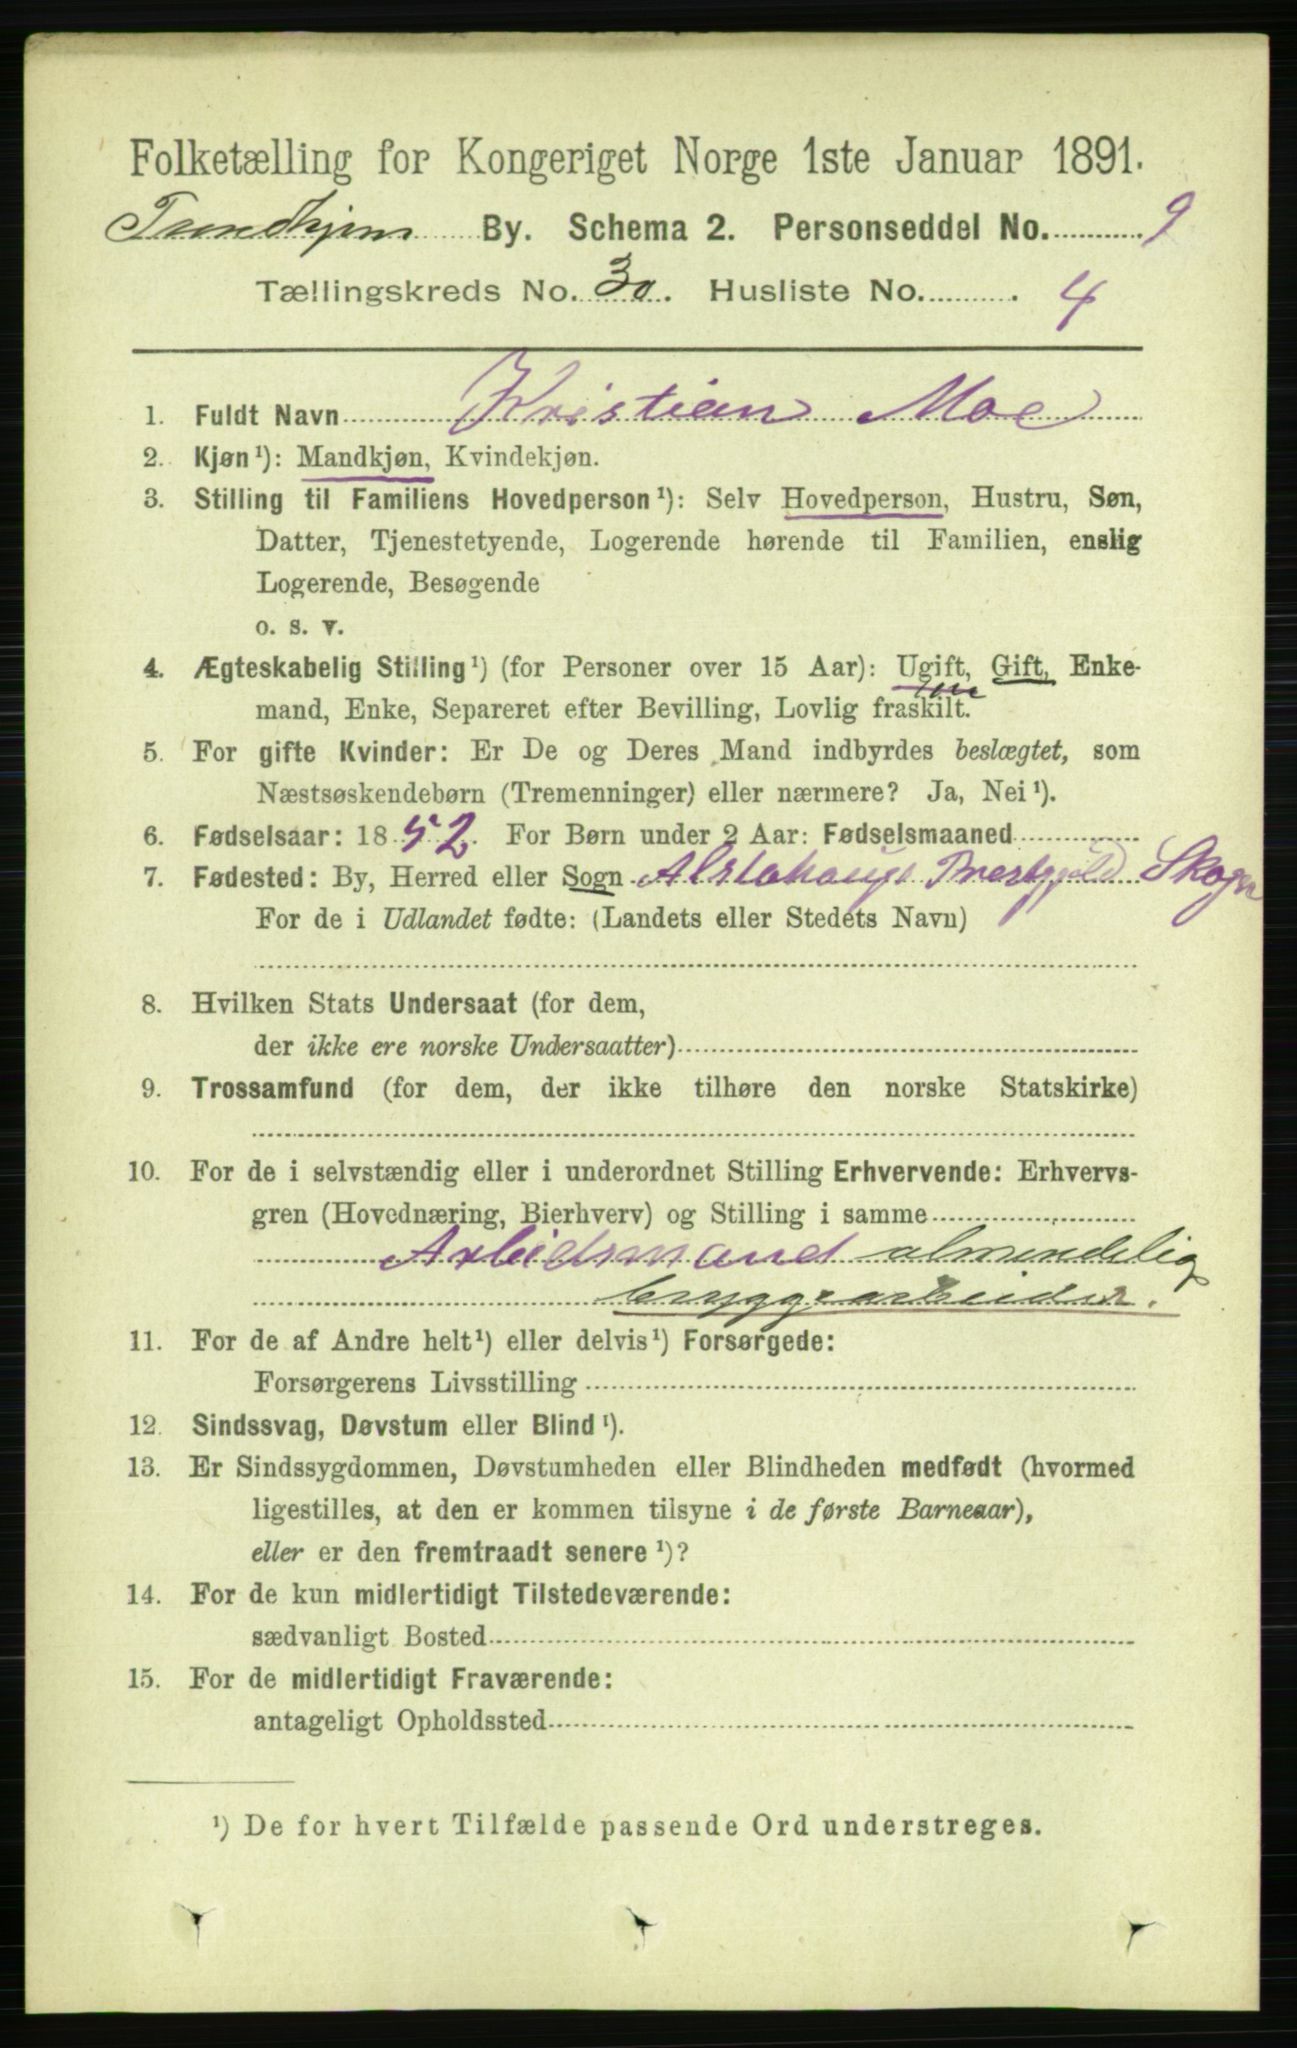 Folketælling for Kongeriget Norge 1ste Januar 1891.
Trondhjem By. Schema 2. Personseddel No. 9
Tællingskreds No. 30. Husliste No. 4
1. Fuldt Navn Kristian Moe
2. Kjøn ¹): Mandkjøn, Kvindekjøn.
3. Stilling til Familiens Hovedperson ¹): Selv Hovedperson, Hustru, Søn,
Datter, Tjenestetyende, Logerende hørende til Familien, enslig
Logerende, Besøgende
o. s. v.
4. Ægteskabelig Stilling ¹) (for Personer over 15 Aar): Ugift, Gift, Enke-
mand, Enke, Separeret efter Bevilling, Lovlig fraskilt.
5. For gifte Kvinder: Er De og Deres Mand indbyrdes beslægtet, som
Næstsøskendebørn (Tremenninger) eller nærmere? Ja, Nei ¹).
6. Fødselsaar: 1852. For Børn under 2 Aar: Fødselsmaaned
7. Fødested: By, Herred eller Sogn Alstahougs Prestgjeld Skogn
For de i Udlandet fødte: (Landets eller Stedets Navn)
8. Hvilken Stats Undersaat (for dem,
der ikke ere norske Undersaatter)
9. Trossamfund (for dem, der ikke tilhøre den norske Statskirke)
10. For de i selvstændig eller i underordnet Stilling Erhvervende: Erhvervs-
gren (Hovednæring, Bierhverv) og Stilling i samme
Arbeidsmand almendelig
bryggearbeider.
11. For de af Andre helt ¹) eller delvis ¹) Forsørgede:
Forsørgerens Livsstilling
12. Sindssvag, Døvstum eller Blind ¹).
13. Er Sindssygdommen, Døvstumheden eller Blindheden medfødt (hvormed
ligestilles, at den er kommen tilsyne i de første Barneaar),
eller er den fremtraadt senere ¹)?
14. For de kun midlertidigt Tilstedeværende:
sædvanligt Bosted
15. For de midlertidigt Fraværende:
antageligt Opholdssted
¹) De for hvert Tilfælde passende Ord understreges.